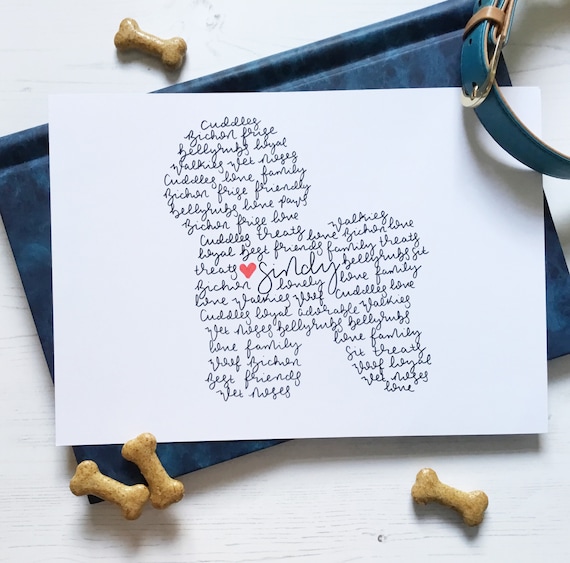 Cuddles
Bichon frise
Bellyrubs loyal
Walkies wet noses
Cuddles love family
Bichon frise friendly
Bellyrubs love paws
Bichon frise love
Walkies
Cuddles treats love Bichon love
loyal Best friends family treats
treats sindy bellyrubs sit
Bichon lovely love family
love Walkies Woof Cuddles love
Cuddles loyal adorable Walkies
Wet noses bellyrubs Bellyrubs
love family love family
Woof Bichon Sit treats
Best friends Woof loyal
Wet noses Wet noses
love